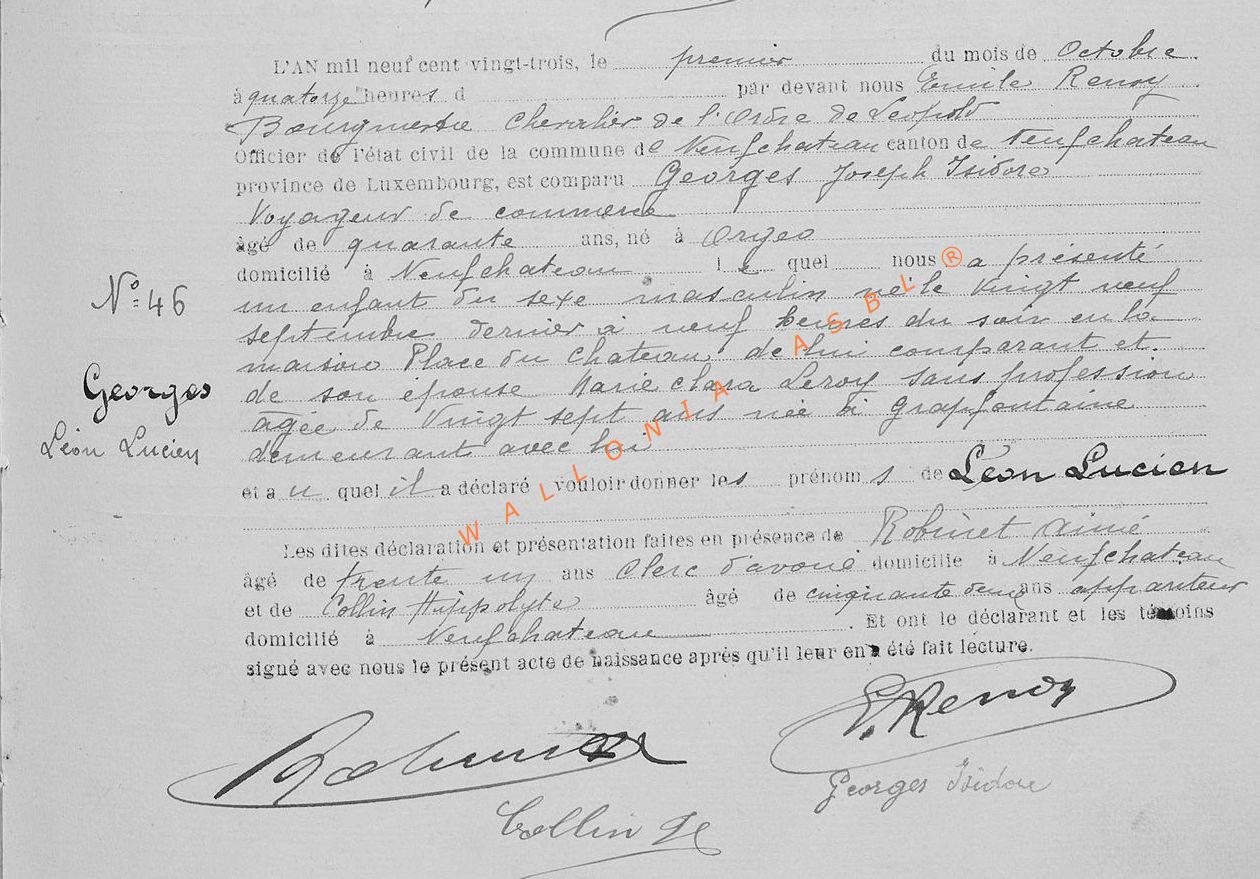 L'AN mil neuf cent vingt-trois, le premier du mois de Octobre
à quatorze heures d par devant nous Emile Renoy
Bourgmestre Chevalier de l'Ordre de Leopold
Officier de l'état civil de la commune de Neufchateau canton de Neufchateau
province de Luxembourg, est comparu Georges Joseph Isidore
Voyageur de commerce
âgé de quarante ans, né à Orgeo
domicilié à Neufchateau lequel nous a présenté
N° 46
un enfant du sexe masculin né le vingt neuf
septembre dernier à neuf heures du soir en la
maison Place du Chateau, de lui comparant et
Georges
de son épouse Marie Clara Leroy sans profession
âgée de Vingt sept ans née à Grapfontaine
Léon Lucien
demeurant avec lui
et au quel il a déclaré vouloir donner les prénoms de Léon Lucien
Les dites déclaration et présentation faites en présence de Robinet Aimé
âgé de trente un ans Clerc d'avoué domicilié à Neufchateau
et de Collin Hippolyte âgé de cinquante deux ans appariteur
domicilié à Neufchateau. Et ont le déclarant et les témoins
signé avec nous le présent acte de naissance après qu'il leur en a été fait lecture.
E. Renoy
Georges Isidore
Collin H
WALLONIA ASBL ®